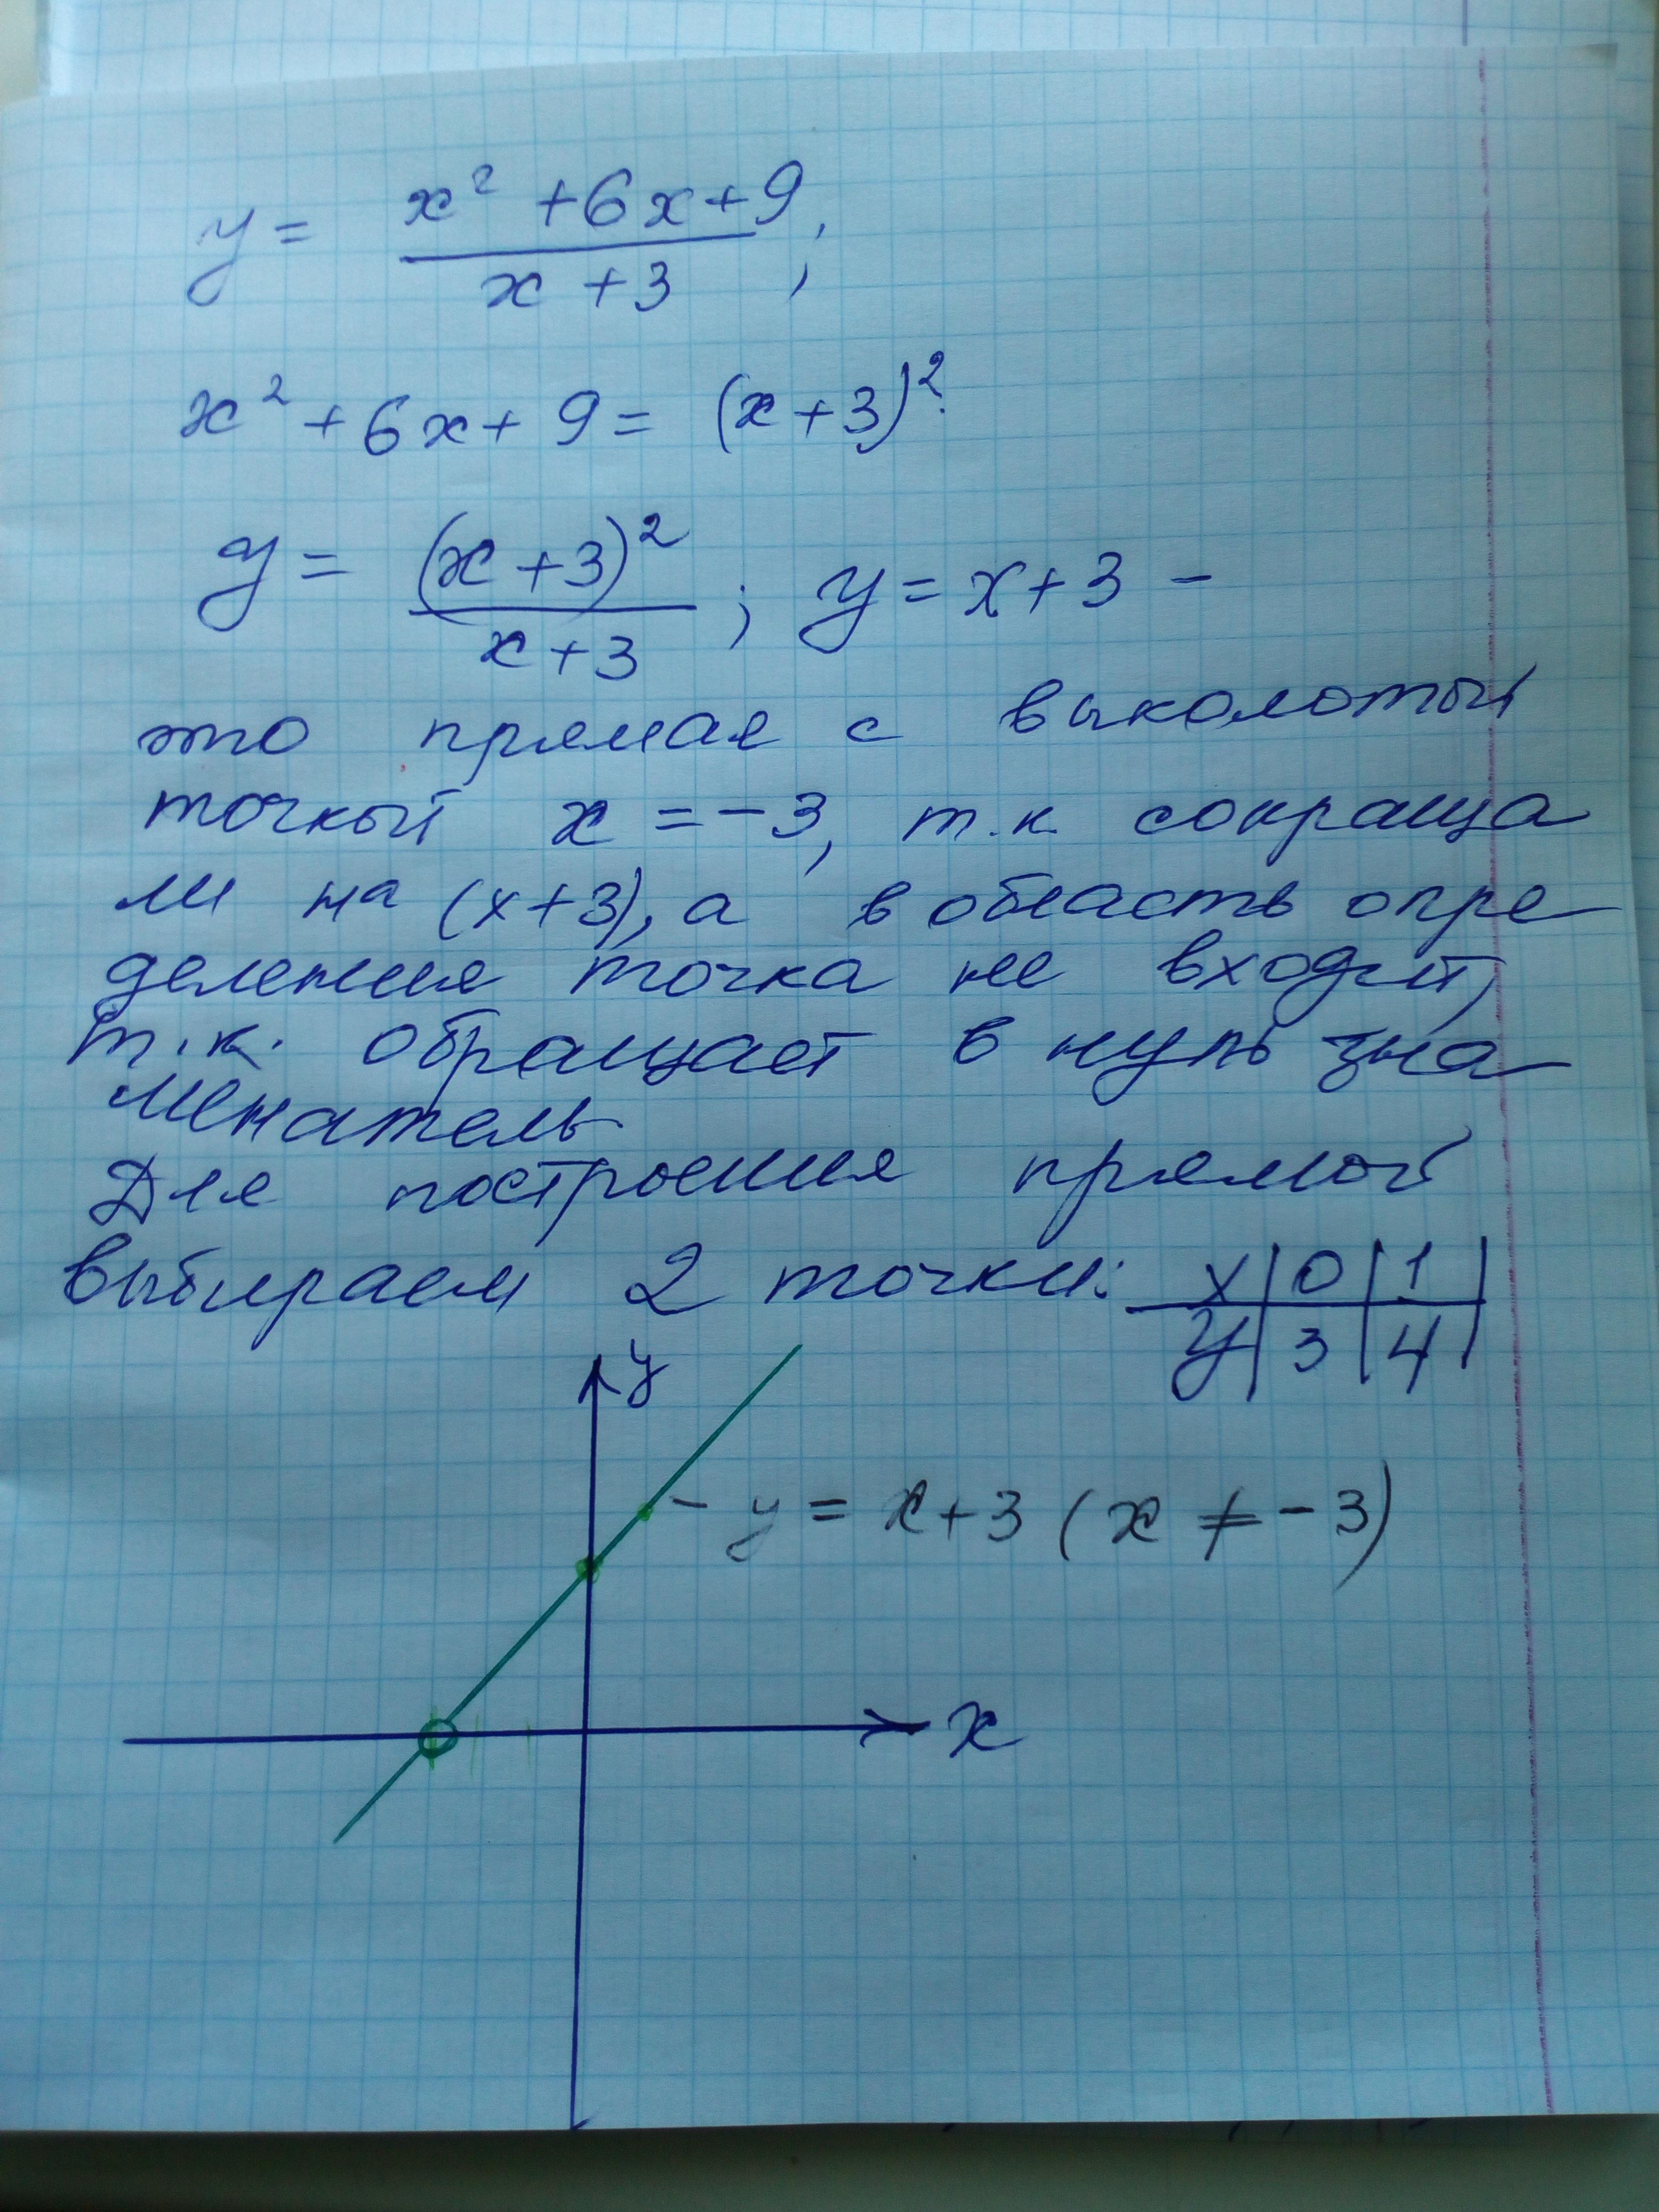 y = (x² + 6x + 9)/(x + 3);
x² + 6x + 9 = (x + 3)².
y = (x + 3)²/(x + 3); y = x + 3 –
это прямая с выколотый
точкой x = -3, т.к сокраща
ли на (x+3), а в область опре
деления точка не входит,
т.к. обращает в нуль зна
менатель
Для построения прямой
выбираем 2 точки: x | 0 | 1 |
y | 3 | 4 |
y
- y = x + 3 (x ≠ -3)
x